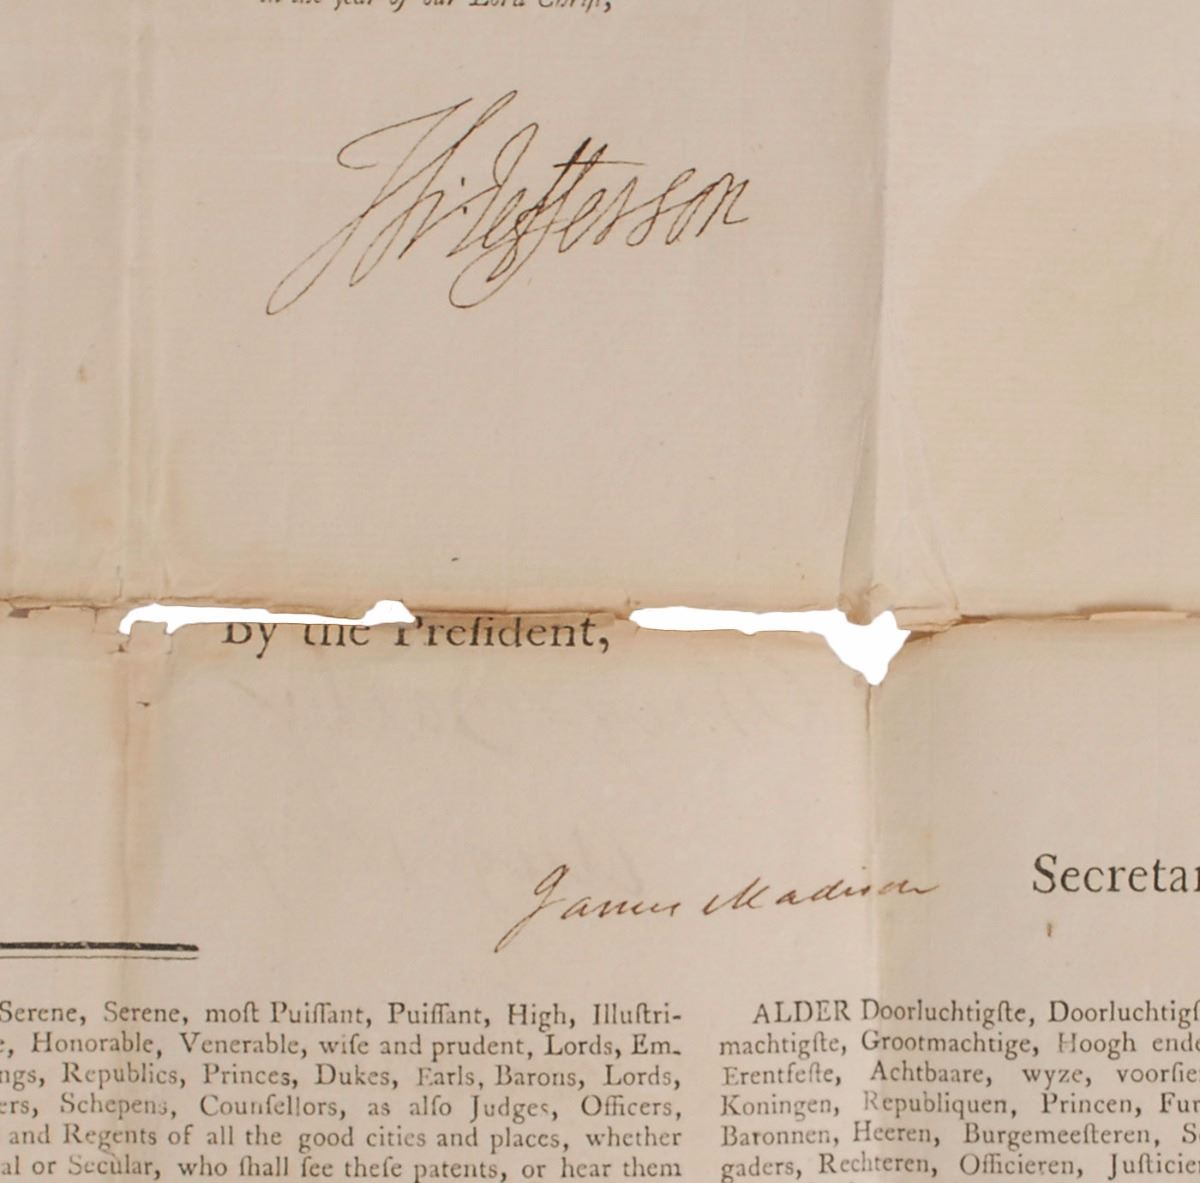 in the year of our Lord Christ,
Th: Jefferson
By the Preſident,
James Madison
Secretar
Serene, Serene, moſt Puiſſant, Puiſſant, High, Illuſtri-
e, Honorable, Venerable, wiſe and prudent, Lords, Em-
ngs, Republics, Princes, Dukes, Earls, Barons, Lords,
ers, Schepens, Counſellors, as alſo Judges, Officers,
and Regents of all the good cities and places, whether
al or Secular, who ſhall ſee theſe patents, or hear them
ALDER Doorluchtigſte, Doorluchtigſ
machtigſte, Grootmachtige, Hoogh ende
Erentfeſte, Achtbaare, wyze, voorſie
Koningen, Republiquen, Princen, Fur
Baronnen, Heeren, Burgemeeſteren, S
gaders, Rechteren, Officieren, Juſticie